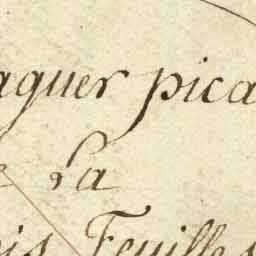 aguer pica
e La
is Feuilles